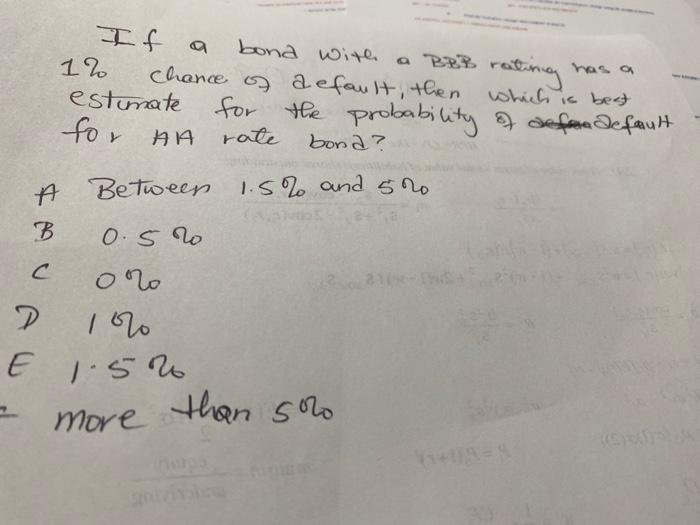 If a bond with a BBB rating has a
1% chance of default, then which is best
estimate for the probability of default
for AA rate bond?
A Between 1.5% and 5%
B 0.5%
C 0%
D 1%
E 1.5%
more than 5%